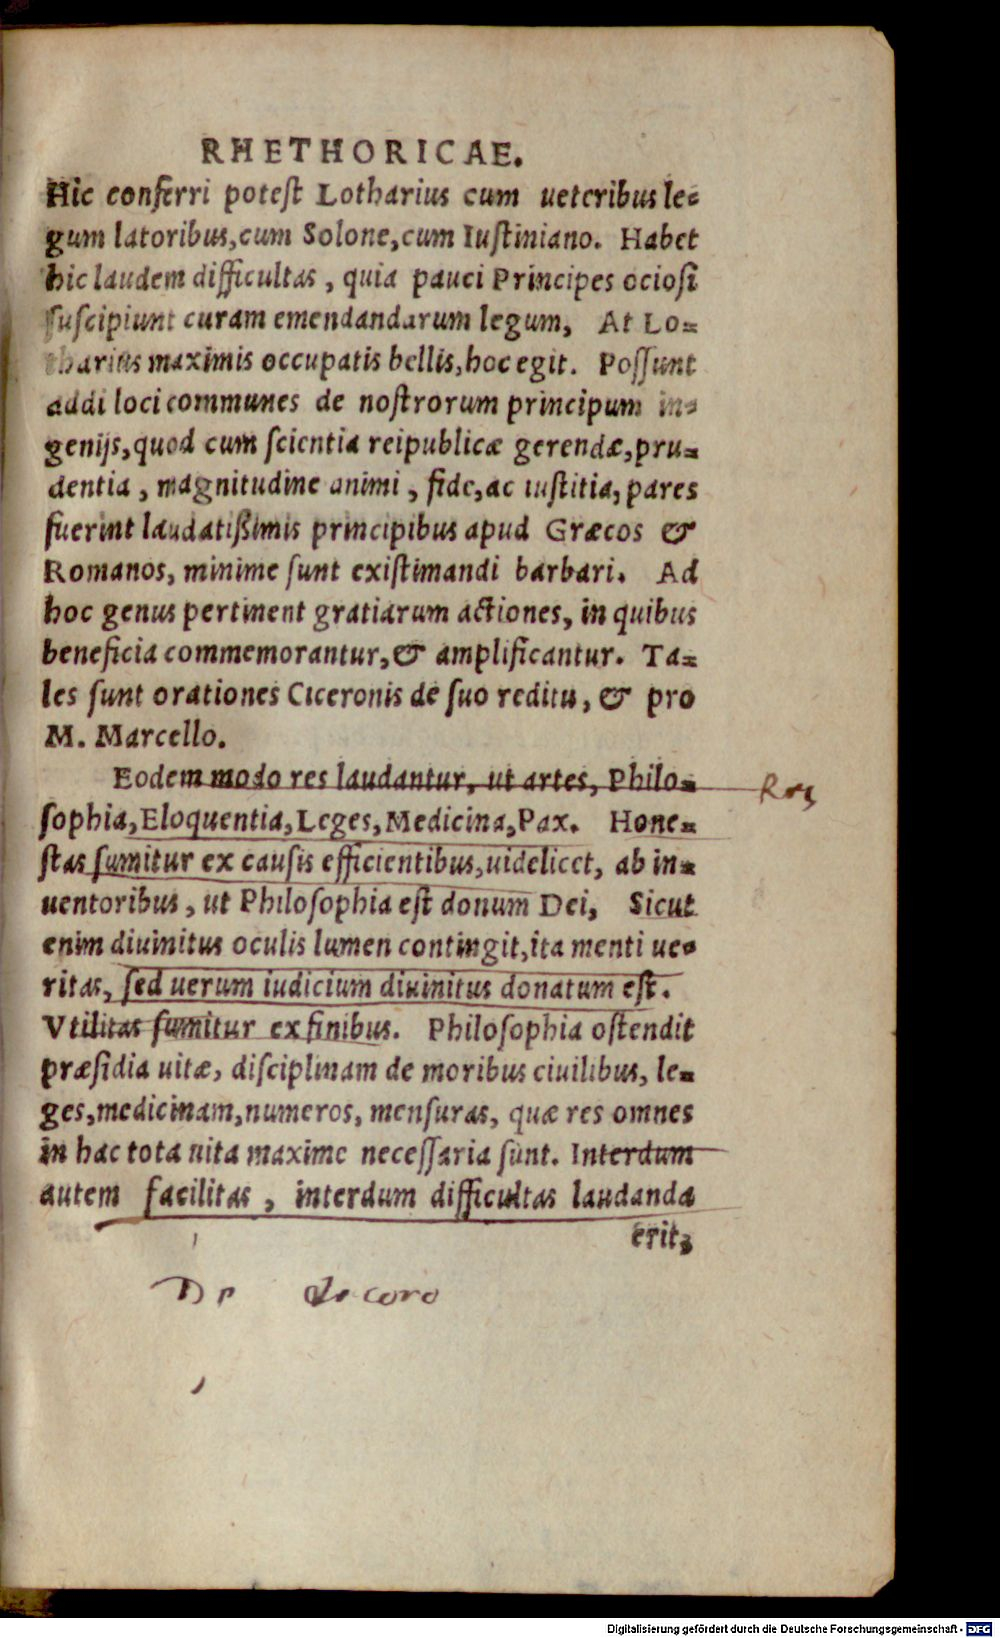 RHETHORICAE.
Hic conferri poteſt Lotharius cum ueteribus le-
gum latoribus, cum Solone, cum Iuſtiniano. Habet
hic laudem difficultas, quia pauci Principes ocioſi
ſuſcipiunt curam emendandarum legum, At Lo-
tharius maximis occupatis bellis, hoc egit. Poſſunt
addi loci communes de noſtrorum principum in-
genijs, quod cum ſcientia reipublicæ gerendæ, pru-
dentia, magnitudine animi, fide, ac iuſtitia, pares
fuerint laudatißimis principibus apud Græcos &
Romanos, minime ſunt exiſtimandi barbari. Ad
hoc genus pertinent gratiarum actiones, in quibus
beneficia commemorantur, & amplificantur. Ta-
les ſunt orationes Ciceronis de ſuo reditu, & pro
M. Marcello.
Eodem modo res laudantur, ut artes, Philo-
ſophia, Eloquentia, Leges, Medicina, Pax. Hone-
ſtas ſumitur ex cauſis efficientibus, uidelicet, ab in-
uentoribus, ut Philoſophia eſt donum Dei, Sicut
enim diuinitus oculis lumen contingit, ita menti ue-
ritas, ſed uerum iudicium diuinitus donatum eſt.
Vtilitas ſumitur ex finibus. Philoſophia oſtendit
præſidia uitæ, diſciplinam de moribus ciuilibus, le-
ges, medicinam, numeros, menſuras, quæ res omnes
in hac tota uita maxime neceſſaria ſunt. Interdum
autem facilitas, interdum difficultas laudanda
erit,
De decoro
Digitalisierung gefördert durch die Deutsche Forschungsgemeinschaft - DFG